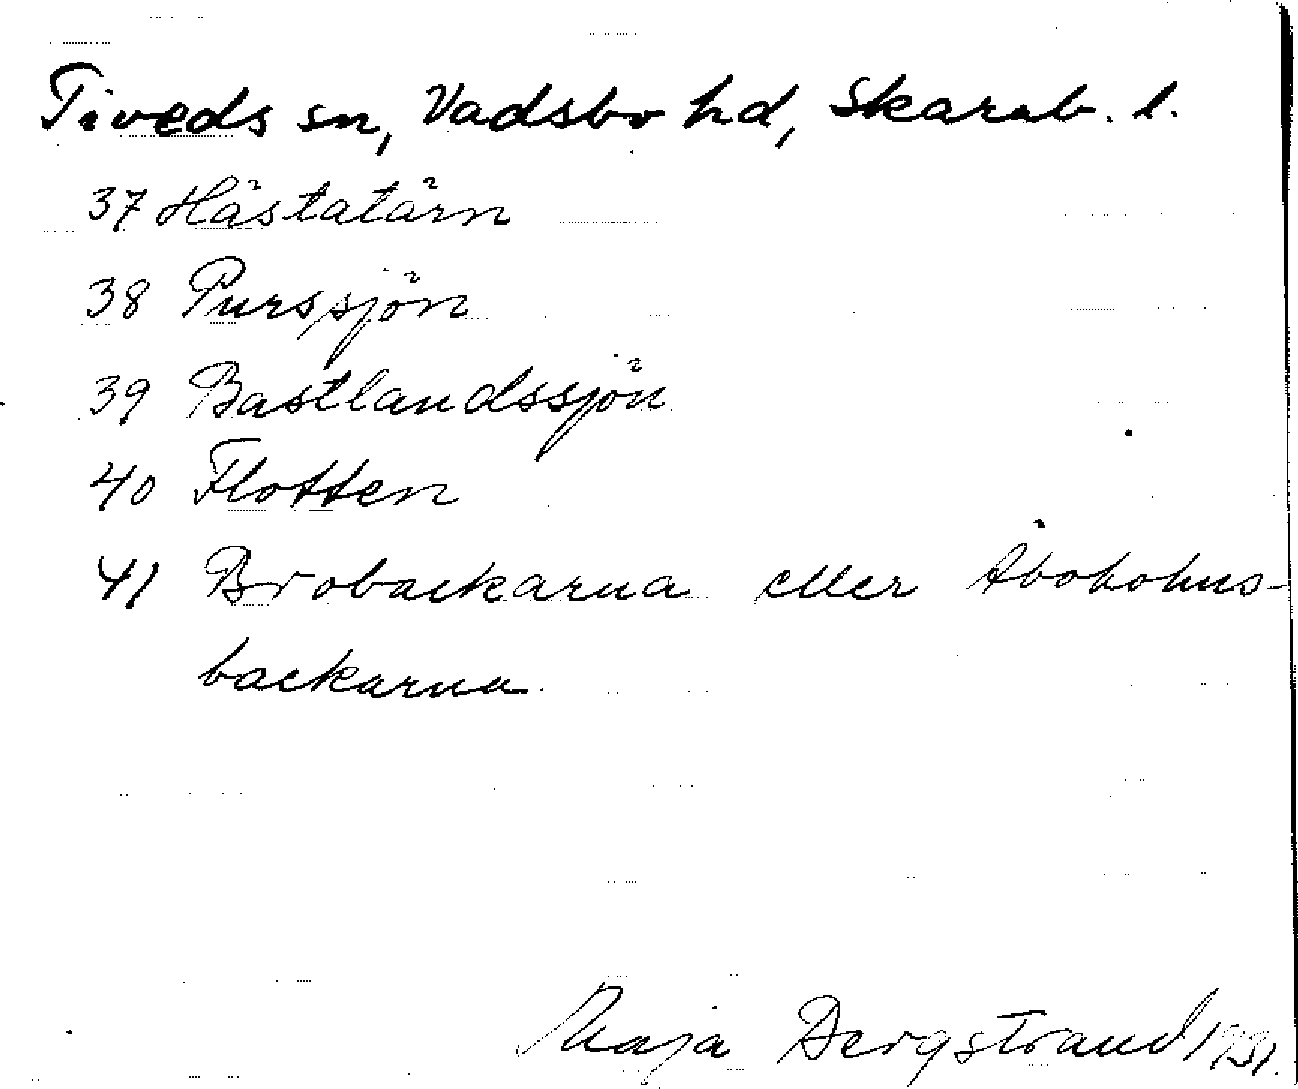 Tiveds sn, Vadsbo hd, Skarab. l.
37 Hästatärn
38 Purssjön
39 Bastlandssjön
40 Flotten
41 Brobackarna eller Åboholms-
backarna
Maja Bergstrand 1931.